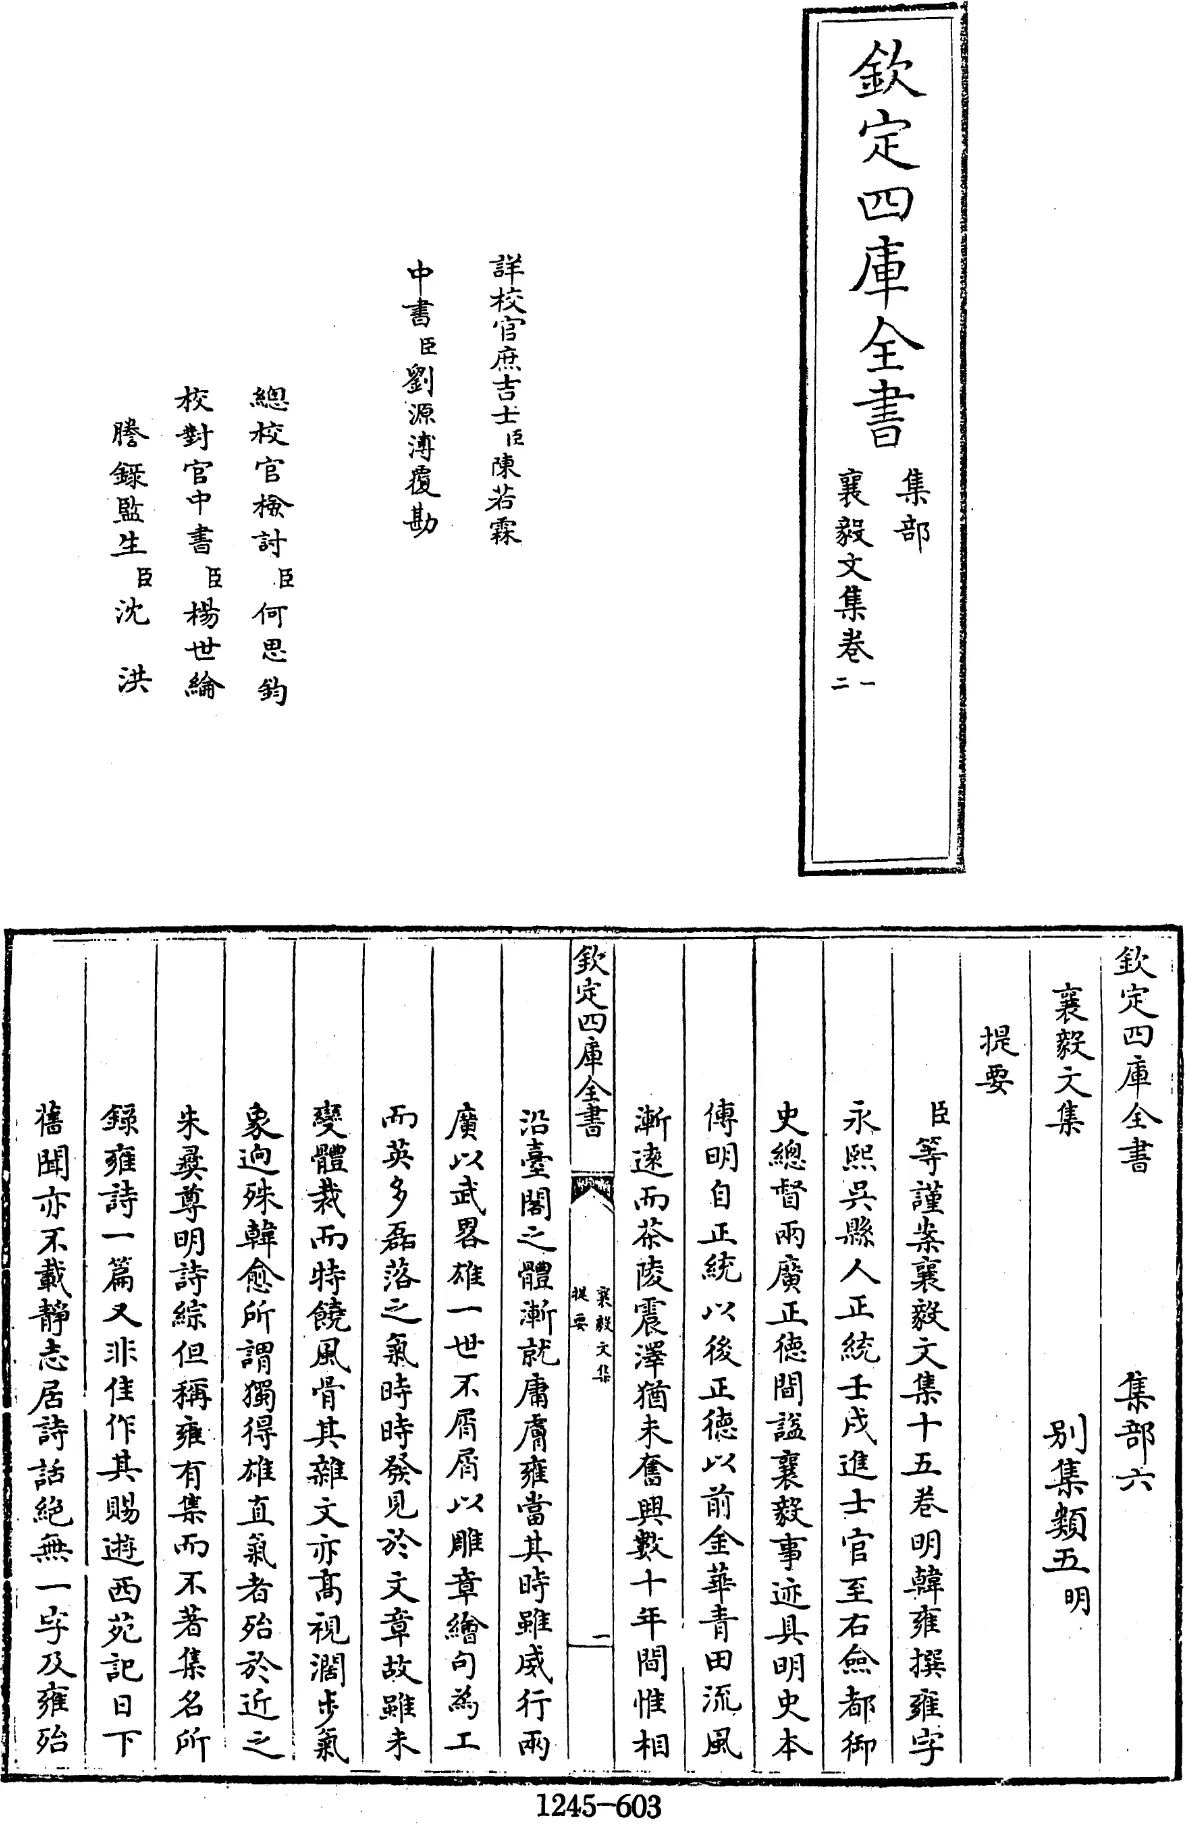 欽定四庫全書
集部
襄毅文集卷一
二
詳校官庶吉士臣陳若霖
中書臣劉源溥覆勘
總校官檢討臣何思鈞
校對官中書臣楊世綸
謄錄監生臣沈洪
欽定四庫全書 集部六
襄毅文集 別集類五明
提要
臣等謹案襄毅文集十五卷明韓雍撰雍字
永熙吳縣人正統壬戌進士官至右僉都御
史總督兩廣正德間諡襄毅事迹具明史本
傳明自正統以後正德以前金華青田流風
漸遠而茶陵震澤猶未奮興數十年間惟相
欽定四庫全書
襄毅文集
提要
一
沿臺閣之體漸就庸膚雍當其時雖威行兩
廣以武畧雄一世不屑屑以雕章繪句為工
而英多磊落之氣時時發見於文章故雖未
變體裁而特饒風骨其雜文亦高視濶步氣
象迥殊韓愈所謂獨得雄直氣者殆於近之
朱彞尊明詩綜但稱雍有集而不著集名所
錄雍詩一篇又非佳作其賜遊西苑記日下
舊聞亦不載靜志居詩話絶無一字及雍殆
1245-603